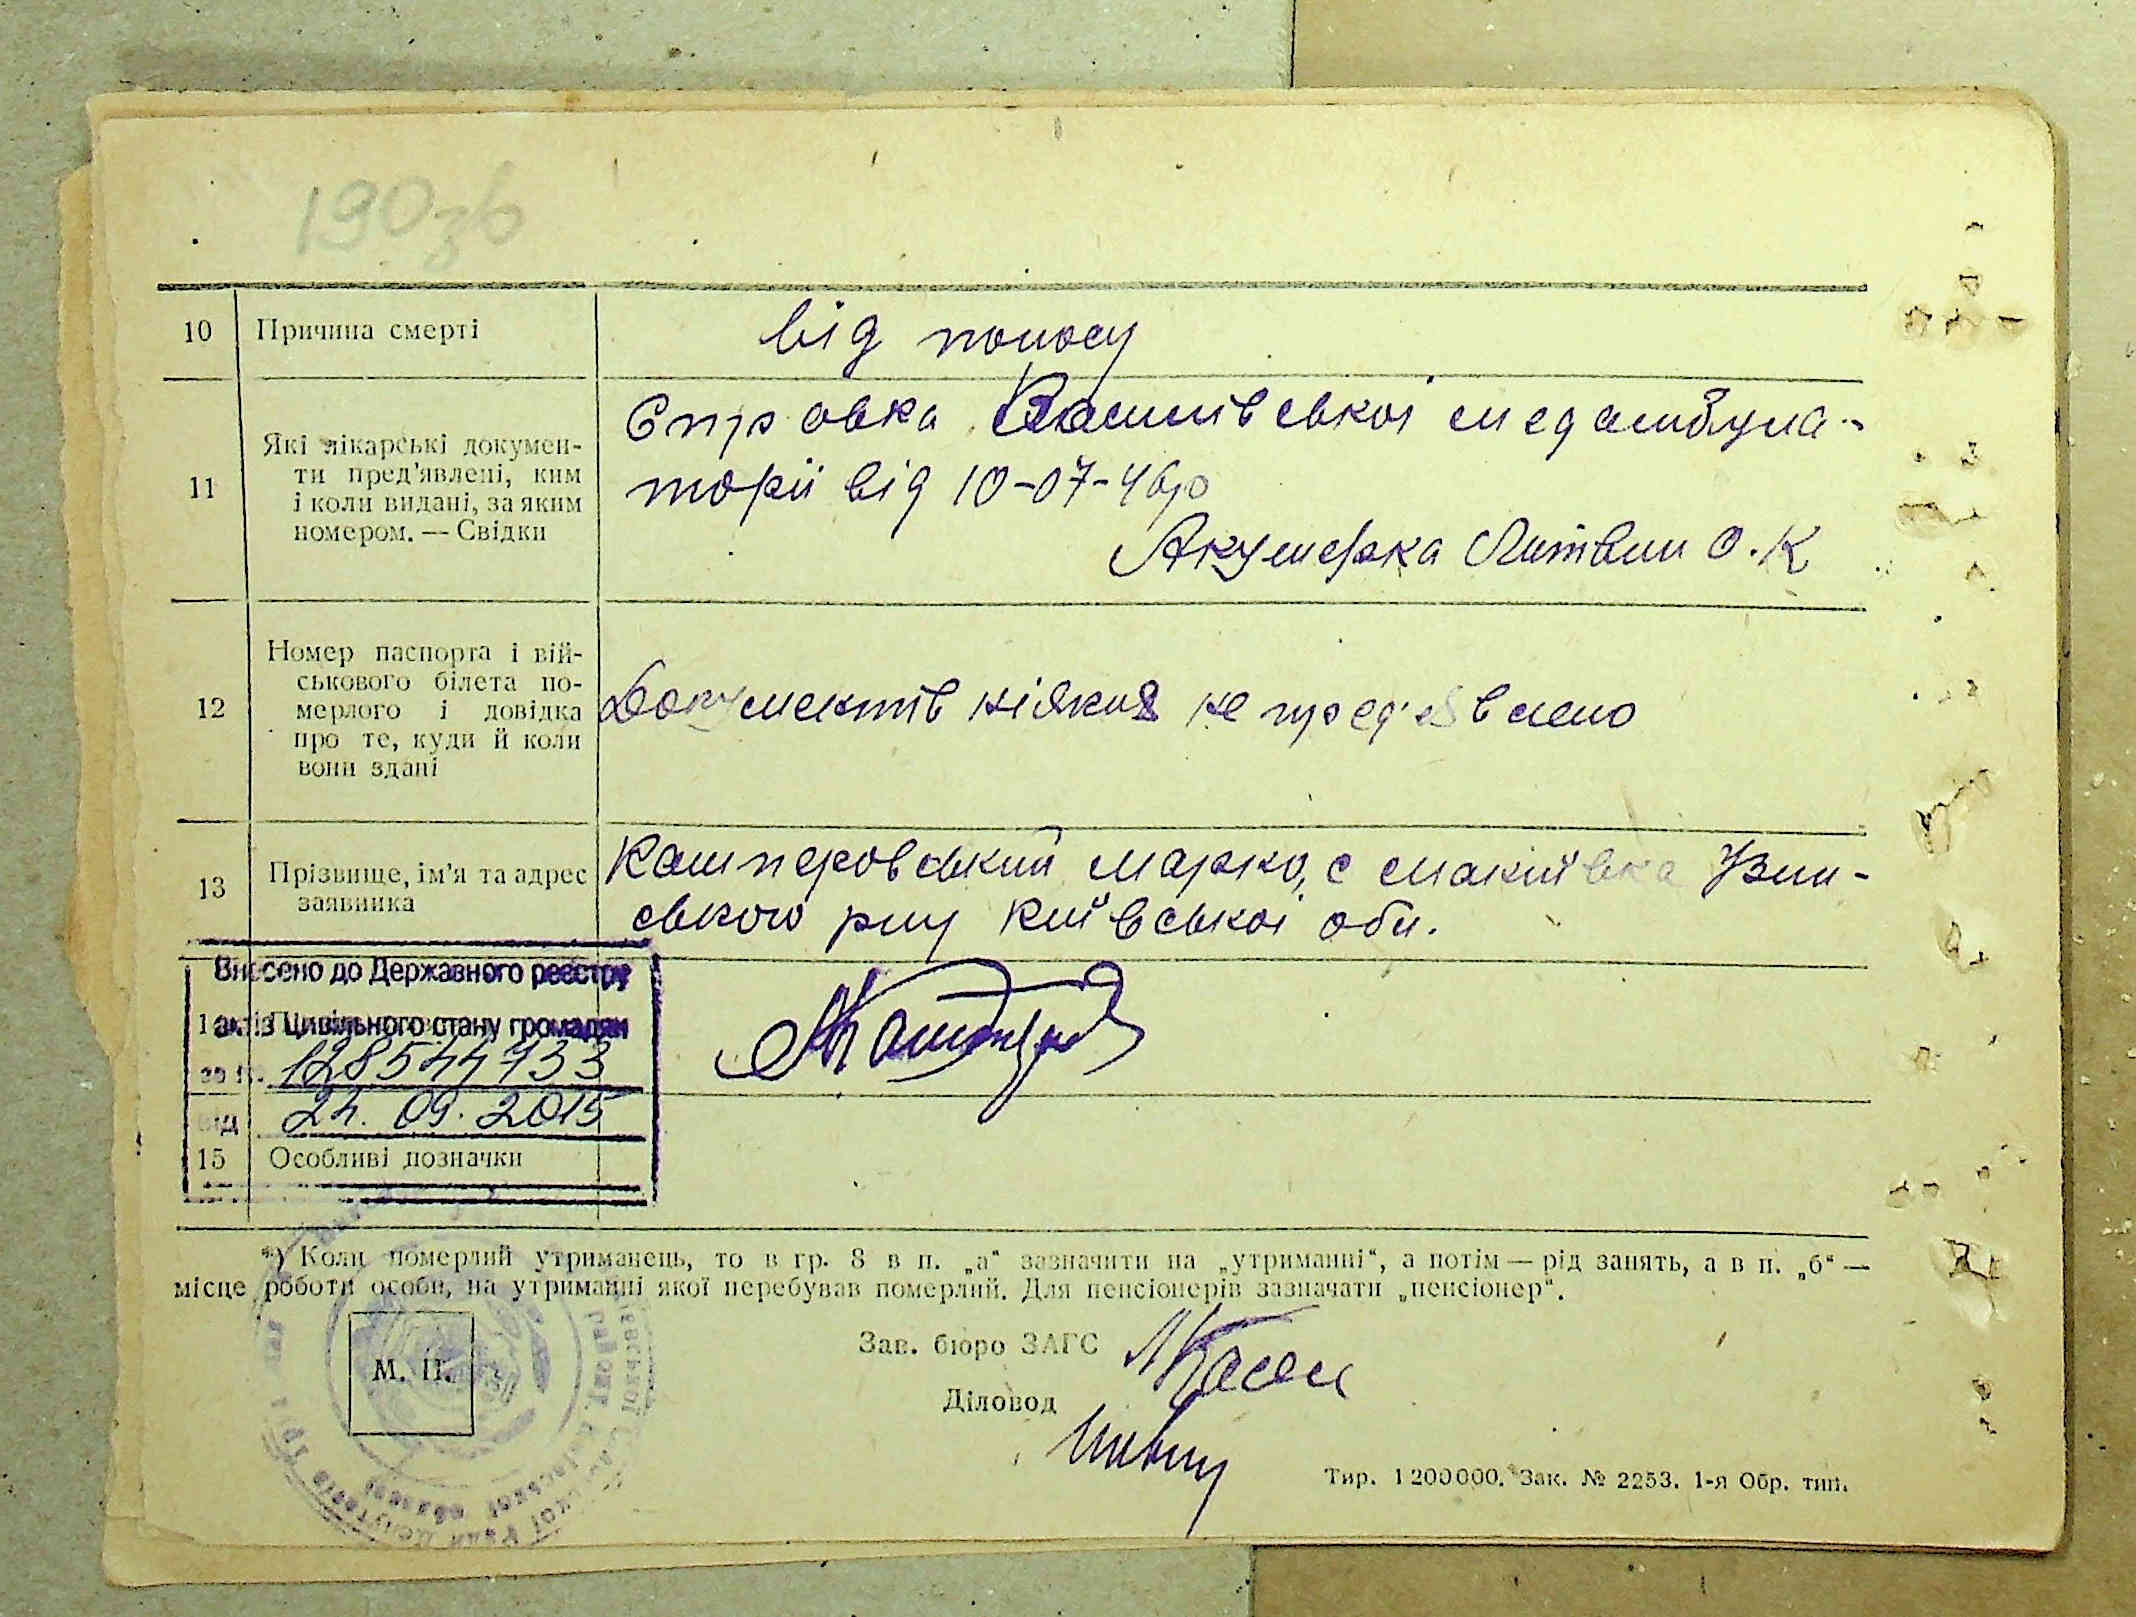 190зв
10 Причина смерті
від поносу
11 Які лікарські докумен-
ти пред'явлені, ким
і коли видані, за яким
номером. — Свідки
Справка медамбула-
торії від 10-07-46р
Акушерка Литвин О.К
12 Номер паспорта і вій-
ськового білета по-
мерлого і довідка
про те, куди й коли
вони здані
Документів ніяких не пред'явлено
13 Прізвище, ім'я та адрес
заявника
Кашперовський Марко, с Макиївка Узин-
ського р-ну Київської обл.
Внесено до Державного реєстру
актів Цивільного стану громадян
за №. 128544733
від 24.09.2015
15 Особливі позначки
*) Коли померлий утриманець, то в гр. 8 в п. „а“ зазначити на „утриманні“, а потім — рід занять, а в п. „б“ —
місце роботи особи, на утриманні якої перебував померлий. Для пенсіонерів зазначати „пенсіонер“.
М. П.
Зав. бюро ЗАГС
Діловод
Тир. 1200000. Зак. № 2253. 1-я Обр. тип.